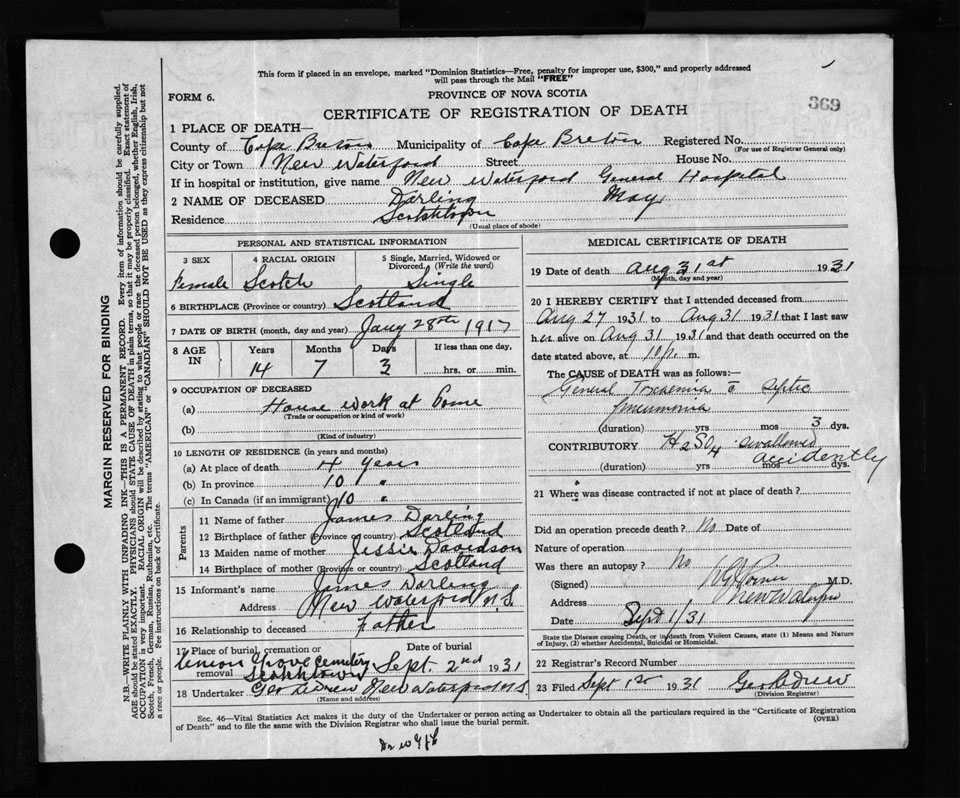 This form if placed in an envelope, marked "Dominion Statistics—Free, penalty for improper use, $300," and properly addressed
will pass through the Mail "FREE"
FORM 6.
PROVINCE OF NOVA SCOTIA
369
CERTIFICATE OF REGISTRATION OF DEATH
1 PLACE OF DEATH—
County of Cape Breton Municipality of Cape Breton Registered No.
(For use of Registrar General only)
City or Town New Waterford Street House No.
If in hospital or institution, give name New Waterford General Hospital
2 NAME OF DECEASED Darling May
Residence Scotchtown
(Usual place of abode)
MARGIN RESERVED FOR BINDING
N.B.—WRITE PLAINLY WITH UNFADING INK—THIS IS A PERMANENT RECORD. Every item of information should be carefully supplied.
AGE should be stated EXACTLY. PHYSICIANS should STATE CAUSE OF DEATH in plain terms, so that it may be properly classified. Exact statement of
OCCUPATION is very important. RACIAL ORIGIN will be described by stating to what people or race the deceased person belonged, whether English, Irish,
Scotch, French, German, Russian, Ruthenian, etc. The terms "AMERICAN" or "CANADIAN" SHOULD NOT BE USED as they express citizenship but not
a race or people. See instructions on back of Certificate.
PERSONAL AND STATISTICAL INFORMATION
3 SEX 4 RACIAL ORIGIN 5 Single, Married, Widowed or
Divorced. (Write the word)
Female Scotch Single
6 BIRTHPLACE (Province or country) Scotland
7 DATE OF BIRTH (month, day and year) Jany 28th 1917
8 AGE IN Years Months Days If less than one day,
14 7 3 hrs. or min.
9 OCCUPATION OF DECEASED
(a) House work at Home
(Trade or occupation or kind of work)
(b)
(Kind of industry)
10 LENGTH OF RESIDENCE (in years and months)
(a) At place of death 4 years
(b) In province 10 "
(c) In Canada (if an immigrant) 10 "
Parents
11 Name of father James Darling
12 Birthplace of father (Province or country) Scotland
13 Maiden name of mother Jessie Davidson
14 Birthplace of mother (Province or country) Scotland
15 Informant's name James Darling
Address New Waterford N.S.
16 Relationship to deceased Father
17 Place of burial, cremation or removal Date of burial
Union Grove Cemetery Scotchtown Sept. 2nd 1931
18 Undertaker Geo LeDrew New Waterford N.S
(Name and address)
MEDICAL CERTIFICATE OF DEATH
19 Date of death Aug 31st 1931
(Month, day and year)
20 I HEREBY CERTIFY that I attended deceased from
Aug 27 1931 to Aug 31 1931 that I last saw
her alive on Aug 31 1931 and that death occurred on the
date stated above, at m.
The CAUSE of DEATH was as follows:—
General Toxaemia c̄ Septic
Pneumonia
(duration) yrs mos 3 dys.
CONTRIBUTORY H2SO4 swallowed
accidently
(duration) yrs mos dys.
21 Where was disease contracted if not at place of death?
Did an operation precede death? No Date of
Nature of operation
Was there an autopsy? No
(Signed) M.D.
Address New Waterford
Date Sept 1/31
State the Disease causing Death, or in death from Violent Causes, state (1) Means and Nature
of Injury, (2) whether Accidental, Suicidal or Homicidal.
22 Registrar's Record Number
23 Filed Sept 1st 1931 Geo LeDrew
(Division Registrar)
Sec. 46—Vital Statistics Act makes it the duty of the Undertaker or person acting as Undertaker to obtain all the particulars required in the "Certificate of Registration
of Death" and to file the same with the Division Registrar who shall issue the burial permit. (OVER)